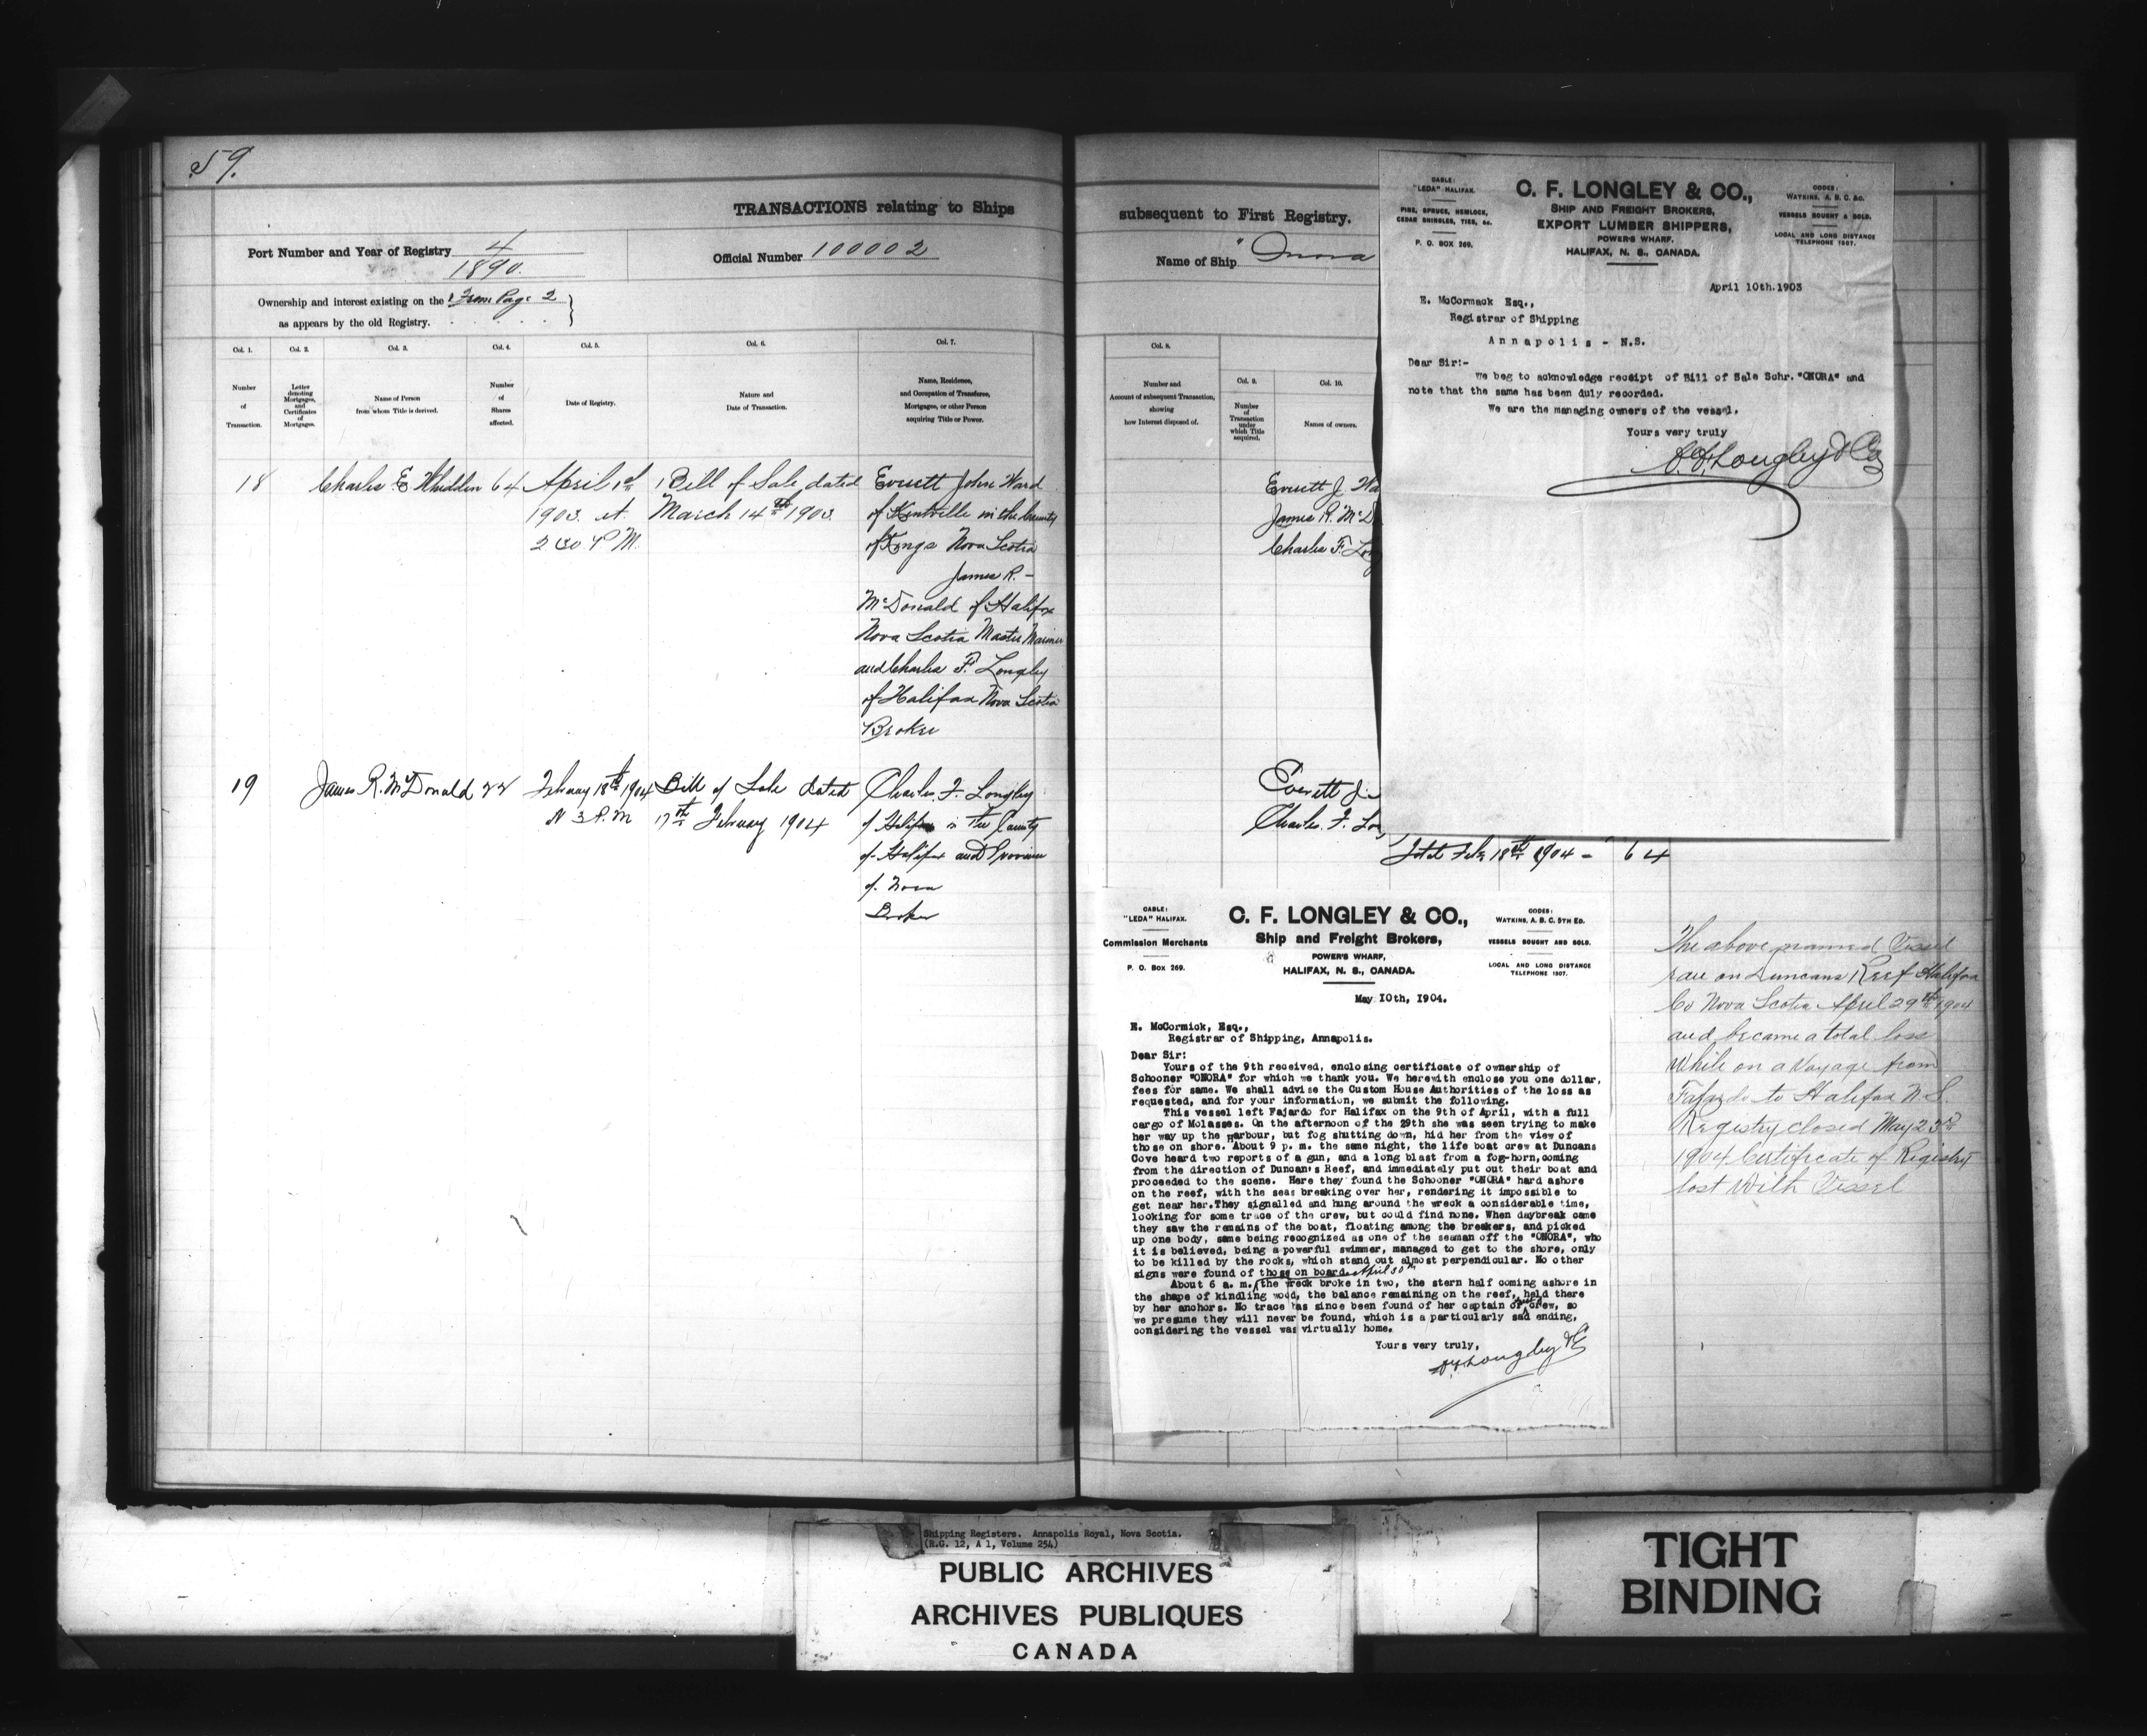 59.
TRANSACTIONS relating to Ships
Port Number and Year of Registry 4
1890.
Official Number 100002
Ownership and interest existing on the From Page 2
as appears by the old Registry.
Col. 1.
Col. 2.
Col. 3.
Col. 4.
Col. 5.
Col. 6.
Col. 7.
Number
of
Transaction.
Letter
denoting
Mortgages,
and
Certificates
of
Mortgages.
Name of Person
from whom Title is derived.
Number
of
Shares
affected.
Date of Registry.
Nature and
Date of Transaction.
Name, Residence,
and Occupation of Transferee,
Mortgagee, or other Person
acquiring Title or Power.
18
Charles E Whidden
64
April 1st
1903. at
2 30 P M.
Bill of Sale dated
March 14th 1903
Everett John Ward
of Kentville in the County
of Kings Nova Scotia
James R. -
McDonald of Halifax
Nova Scotia Master Mariner
and Charles F. Longley
of Halifax Nova Scotia
Broker
19
James R. McDonald
22
February 18th 1904
at 3 P.M
Bill of Sale dated
17th February 1904
Charles F. Longley
of Halifax in the County
of Halifax and Province
of Nova
Broker
subsequent to First Registry.
Name of Ship "Onora
Col. 8.
Col. 9.
Col. 10.
Number and
Account of subsequent Transaction,
showing
how Interest disposed of.
Number
of
Transaction
under
which Title
acquired.
Names of owners.
Everett J. Wa
James R. McD
Charles F. Lon
Everett J.
Charles. F. Lon
Total Feby 18th 1904 - 64
CABLE:
"LEDA" HALIFAX.
PINE, SPRUCE, HEMLOCK,
CEDAR SHINGLES, TIES, &c.
P. O. BOX 269.
C. F. LONGLEY & CO.,
SHIP AND FREIGHT BROKERS,
EXPORT LUMBER SHIPPERS,
POWER'S WHARF.
HALIFAX, N. S., CANADA.
CODES:
WATKINS, A. B. C. &c.
VESSELS BOUGHT & SOLD.
LOCAL AND LONG DISTANCE
TELEPHONE 1507.
April 10th.1903
E. McCormack Esq.,
Registrar of Shipping
Annapolis - N.S.
Dear Sir:-
We beg to acknowledge receipt of Bill of Sale Schr. "ONORA" and
note that the same has been duly recorded.
We are the managing owners of the vessel.
Yours very truly
C.F. Longley & Co
CABLE:
"LEDA" HALIFAX.
Commission Merchants
P. O. Box 269.
C. F. LONGLEY & CO.,
Ship and Freight Brokers,
POWER'S WHARF,
HALIFAX, N. S., CANADA.
CODES:
WATKINS, A. B. C. 5TH ED.
VESSELS BOUGHT AND SOLD.
LOCAL AND LONG DISTANCE
TELEPHONE 1507.
May 10th, 1904.
E. McCormick, Esq.,
Registrar of Shipping, Annapolis.
Dear Sir:
Yours of the 9th received, enclosing certificate of ownership of
Schooner "ONORA" for which we thank you. We herewith enclose you one dollar,
fees for same. We shall advise the Custom House Authorities of the loss as
requested, and for your information, we submit the following.
This vessel left Fajardo for Halifax on the 9th of April, with a full
cargo of Molasses. On the afternoon of the 29th she was seen trying to make
her way up the Harbour, but fog shutting down, hid her from the view of
those on shore. About 9 p. m. the same night, the life boat crew at Duncans
Cove heard two reports of a gun, and a long blast from a fog-horn, coming
from the direction of Duncan's Reef, and immediately put out their boat and
proceeded to the scene. Here they found the Schooner "ONORA" hard ashore
on the reef, with the seas breaking over her, rendering it impossible to
get near her. They signalled and hung around the wreck a considerable time,
looking for some trace of the crew, but could find none. When daybreak came
they saw the remains of the boat, floating among the breakers, and picked
up one body, same being recognized as one of the seaman off the "ONORA", who
it is believed, being a powerful swimmer, managed to get to the shore, only
to be killed by the rocks, which stand out almost perpendicular. No other
signs were found of those on board. April 30th
About 6 a. m. the wreck broke in two, the stern half coming ashore in
the shape of kindling wood, the balance remaining on the reef, held there
by her anchors. No trace has since been found of her captain or crew, so
we presume they will never be found, which is a particularly sad ending,
considering the vessel was virtually home.
Yours very truly,
C.F. Longley & Co
The above named Vessel
ran on Duncans Reef Halifax
Co Nova Scotia April 29th 1904
and became a total loss
While on a Voyage from
Fajardo to Halifax N.S.
Registry closed May 23rd
1904 Certificate of Registry
lost With Vessel
Shipping Registers. Annapolis Royal, Nova Scotia.
(R.G. 12, A 1, Volume 254)
PUBLIC ARCHIVES
ARCHIVES PUBLIQUES
CANADA
TIGHT
BINDING